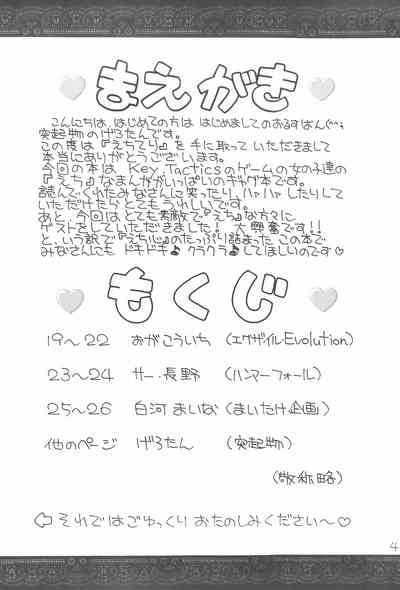 まえがき
こんにちは、はじめての方は はじめましてのあるすはん(^^;
突起物のげろたんです。
この度は『えちてり』を手に取って いただきまして
本当にありがとうございます。
今回の本は、Key、Tacticsのゲームの女の子達の
『えち』なまんががいっぱいのギャグ本です。
読んでくれたみなさんに笑ったり、ハァハァしたりして
いただけたら とてもうれしいです。
あと、今回は とても素敵で『えち』な方々に
ゲストをしていただきました! 大興奮です!!
と、いう訳で『えち心』のたっぷり詰まった この本で
みなさんにも ドキドキ♪ クラクラ♪してほしいのです♡
もくじ
19~22 おがこういち (エグザイルEvolution)
23~24 サー・長野 (ハンマーフォール)
25~26 白河まいな (まいたけ企画)
他のページ げろたん (突起物)
(敬称略)
⇦ それではごゆっくり おたのしみください~♡
4